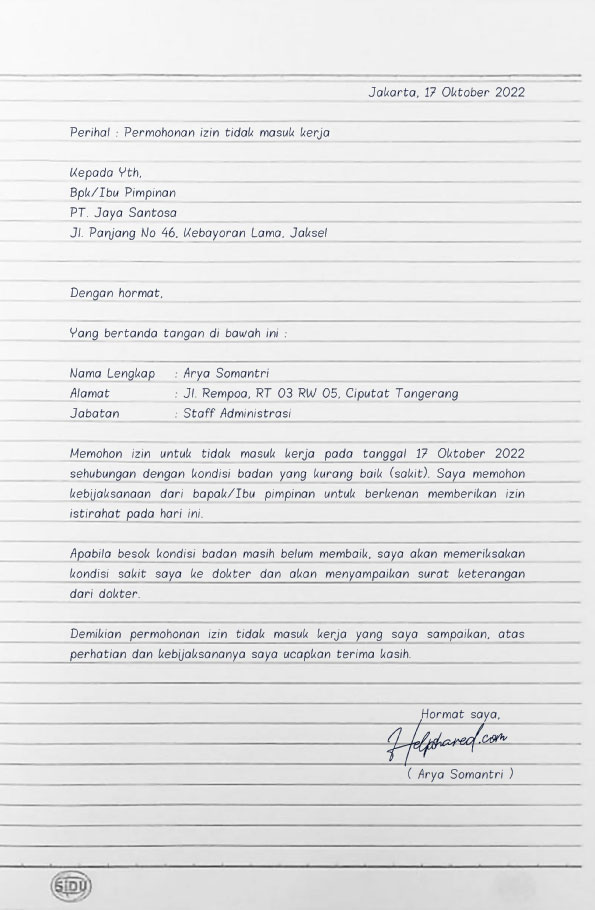 Jakarta, 17 Oktober 2022
Perihal : Permohonan izin tidak masuk kerja
Kepada Yth,
Bpk/Ibu Pimpinan
PT. Jaya Santosa
Jl. Panjang No 46, Kebayoran Lama, Jaksel
Dengan hormat,
Yang bertanda tangan di bawah ini :
Nama Lengkap : Arya Somantri
Alamat : Jl. Rempoa, RT 03 RW 05, Ciputat Tangerang
Jabatan : Staff Administrasi
Memohon izin untuk tidak masuk kerja pada tanggal 17 Oktober 2022
sehubungan dengan kondisi badan yang kurang baik (sakit). Saya memohon
kebijaksanaan dari bapak/Ibu pimpinan untuk berkenan memberikan izin
istirahat pada hari ini.
Apabila besok kondisi badan masih belum membaik, saya akan memeriksakan
kondisi sakit saya ke dokter dan akan menyampaikan surat keterangan
dari dokter.
Demikian permohonan izin tidak masuk kerja yang saya sampaikan, atas
perhatian dan kebijaksananya saya ucapkan terima kasih.
Hormat saya,
Helpshared.com
( Arya Somantri )
SIDU